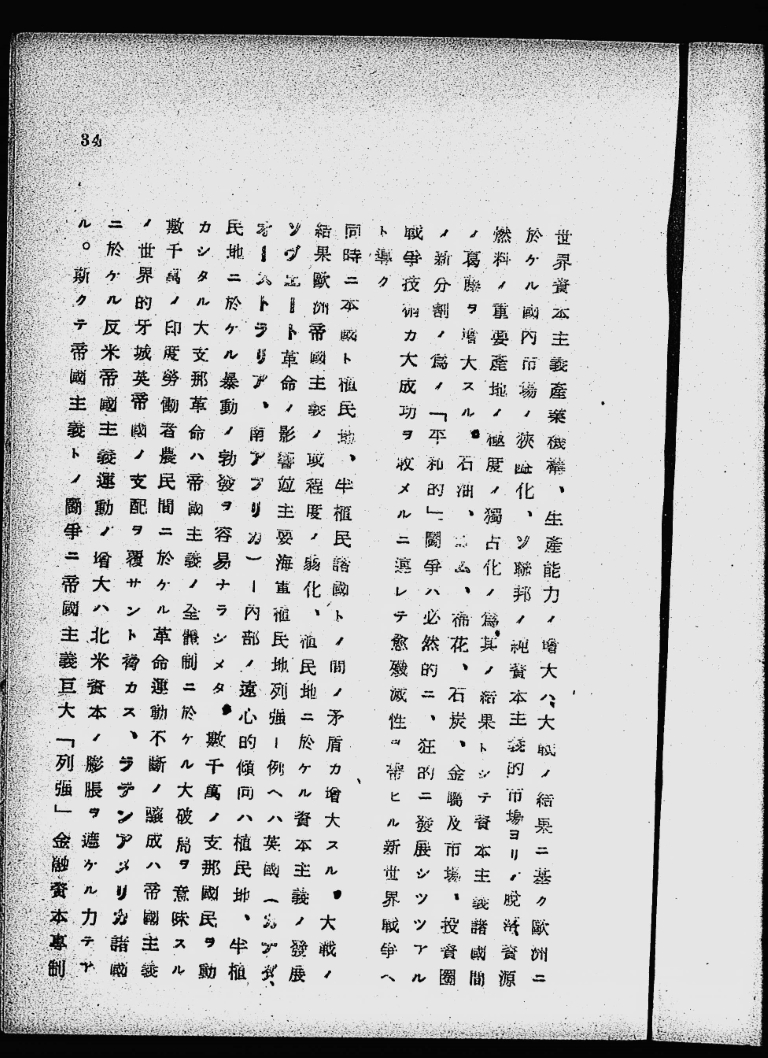 34
世界資本主義產業機構、生產能力ノ增大ハ、大戰ノ結果ニ基ク歐洲ニ
於ケル國內市場ノ狹隘化、ソ聯邦ノ純資本主義的市場ヨリノ脫落資源
燃料ノ重要產地ノ極度ノ獨占化ノ爲其ノ結果トシテ資本主義諸國間
ノ葛藤ヲ增大スル。石油、ゴム、棉花、石炭、金屬及市場、投資圈
ノ新分割ノ爲ノ「平和的」鬪爭ハ必然的ニ、狂的ニ發展シツツアル
戰爭技術カ大成功ヲ收メルニ連レテ愈殲滅性ヲ帶ヒル新世界戰爭ヘ
ト導ク
同時ニ本國ト植民地、半植民諸國トノ間ノ矛盾カ增大スル。大戰ノ
結果歐洲帝國主義ノ或程度ノ弱化、植民地ニ於ケル資本主義ノ發展
ソヴエート革命ノ影響竝主要海軍植民地列强ー例ヘハ英國(カナダ、
オーストラリア、南アフリカ)ー內部ノ遠心的傾向ハ植民地、半植
民地ニ於ケル暴動ノ勃發ヲ容易ナラシメタ。數千萬ノ支那國民ヲ動
カシタル大支那革命ハ帝國主義ノ全體制ニ於ケル大破局ヲ意味スル
數千萬ノ印度勞働者農民間ニ於ケル革命運動不斷ノ釀成ハ帝國主義
ノ世界的牙城英帝國ノ支配ヲ覆サント脅カス、ラテンアメリカ諸國
ニ於ケル反米帝國主義運動ノ增大ハ北米資本ノ膨脹ヲ遮ケル力テア
ル。斯クテ帝國主義トノ鬪爭ニ帝國主義巨大「列强」金融資本專制